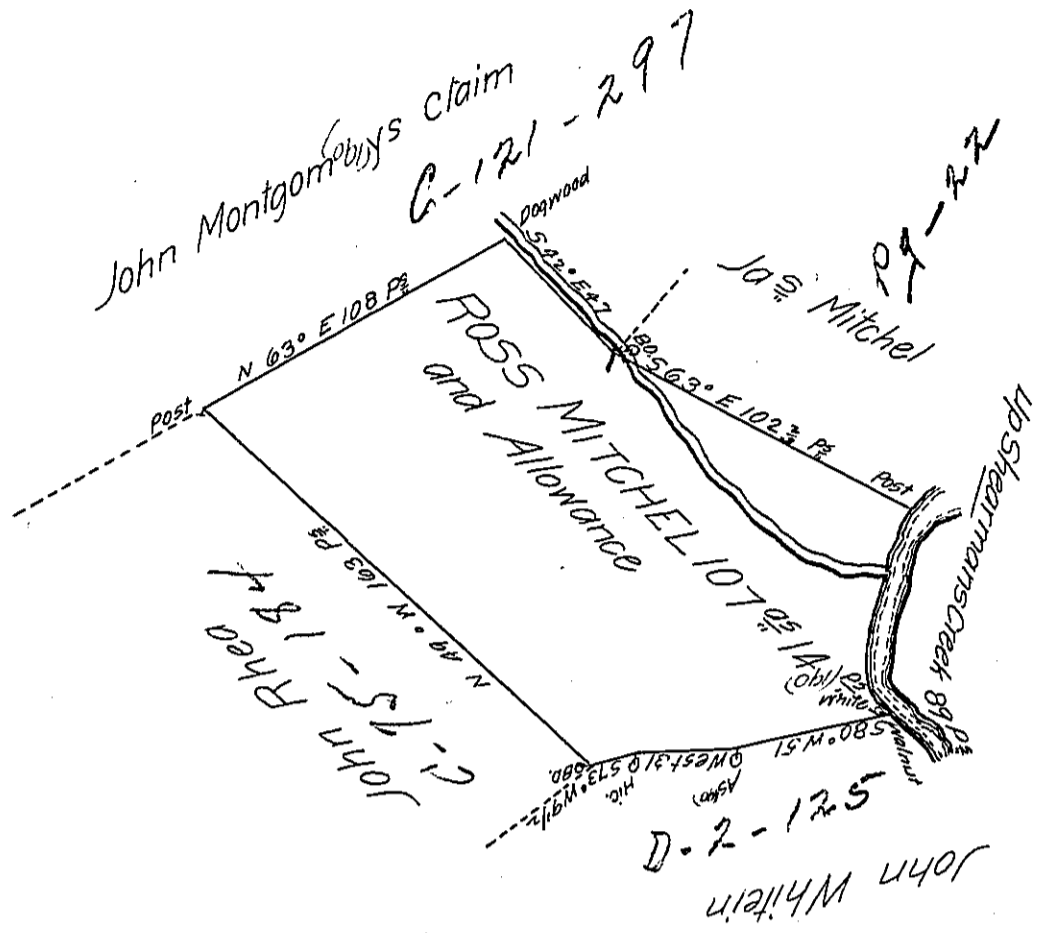 John Montgomery's Claim
C-121-297
Dogwood
S 42° E 47
Jas Mitchel
P9-22
N 63° E 108 Ps
Post
B.O.
S 63° E 102 Ps
Post
ROSS MITCHEL 107 as 14
and Allowance
Up Shearmans Creek 89 Ps
N 49° W 163 Ps
John Rhea
C-15-184
White
Walnut
S 80° W 51
West 31
Hic.
S 73° W 9 1/2
D-2-125
John Whitein